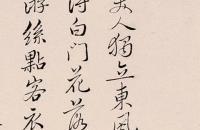 人獨立東風
白門花落
游絲點客衣